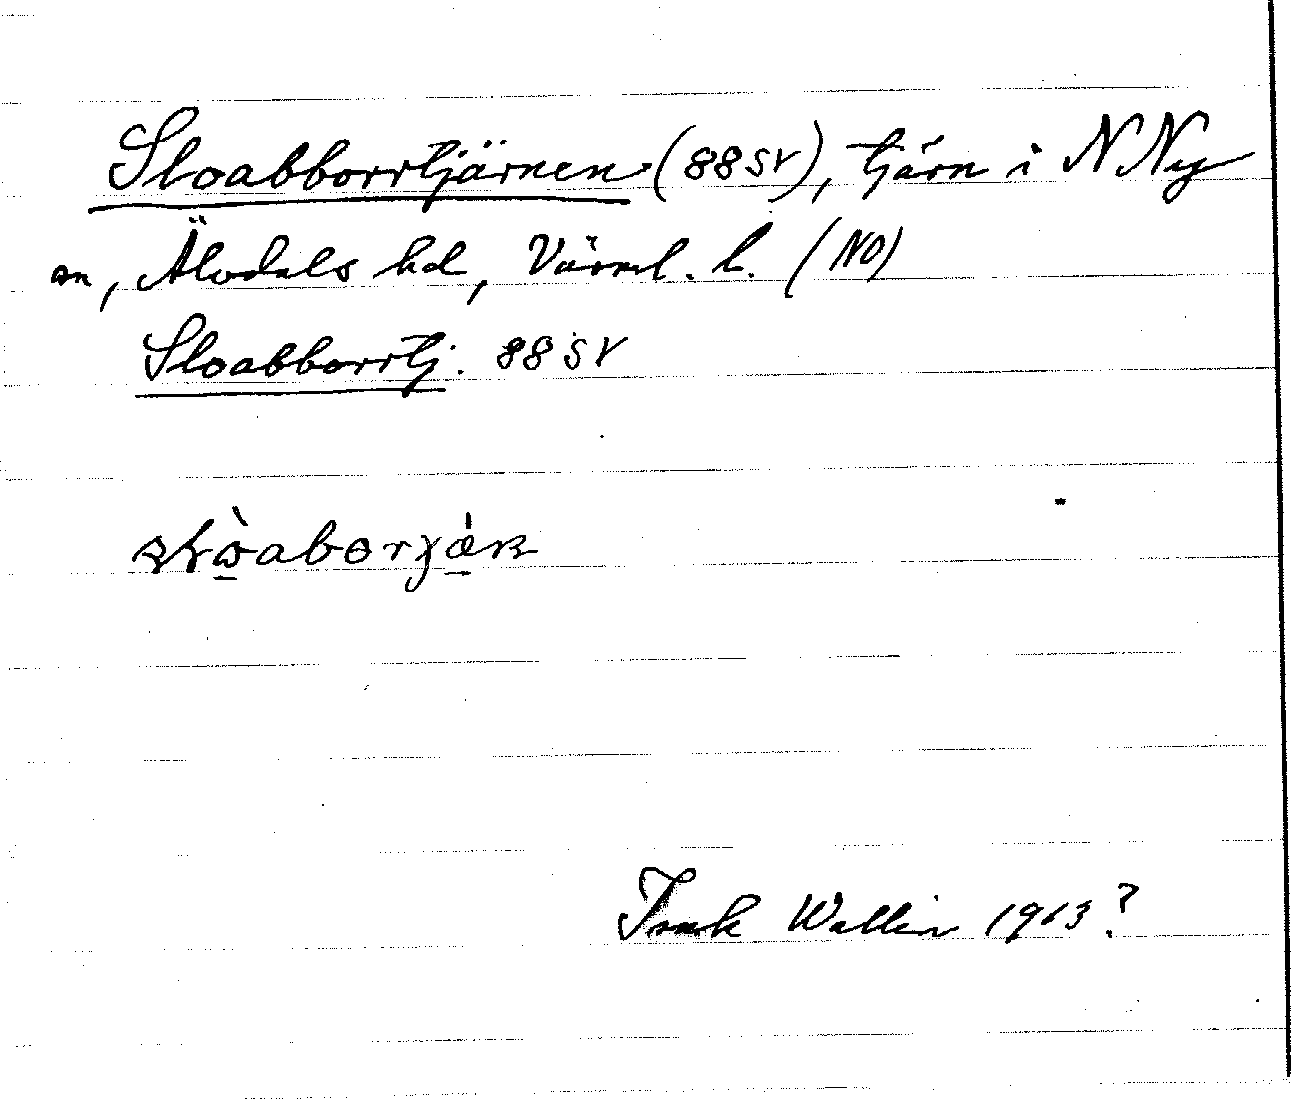 Sloabborrtjärnen (88SV), tjärn i N Ny
sn, Älvdals hd, Värml. l. (NO)
Sloabborrtj. 88SV
Wallin 1913?